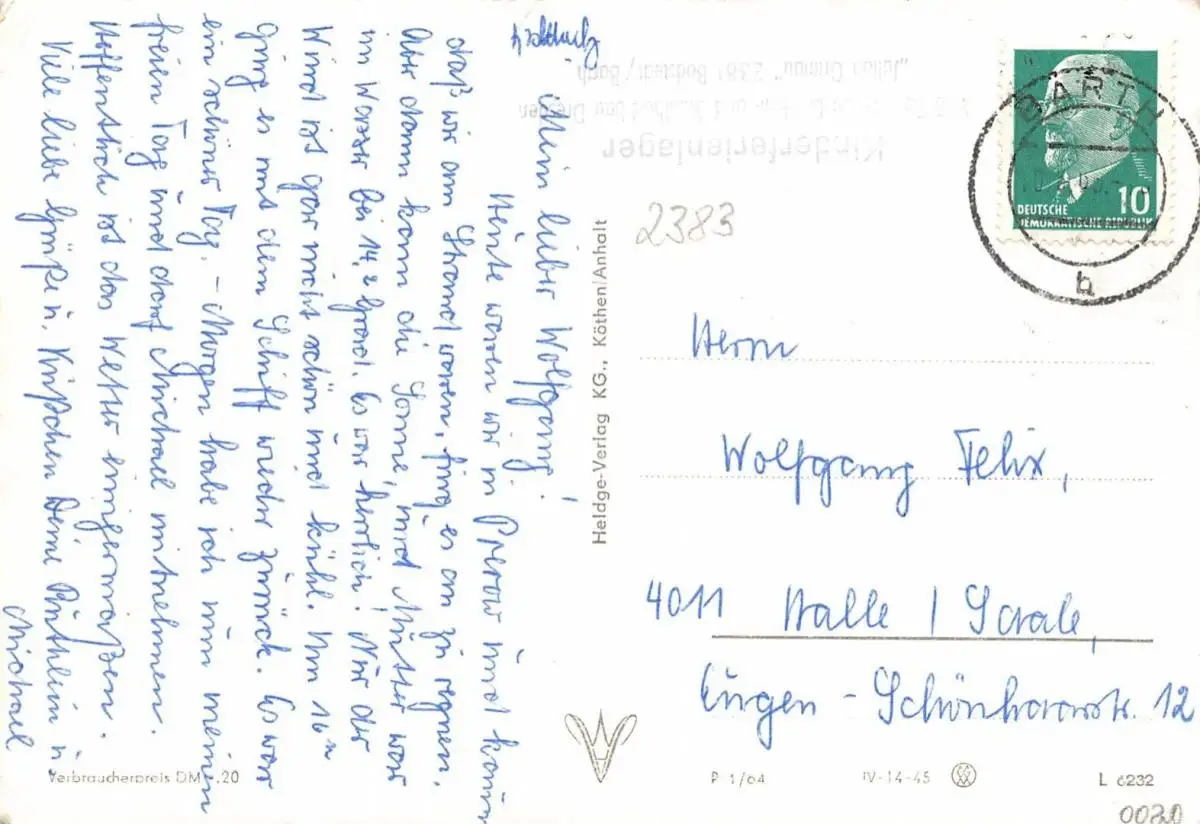 Mein lieber Wolfgang!
Heute waren wir in Prerow und kaum
daß wir am Strand waren, fing es an zu regnen.
Aber dann kam die Sonne, und Mutter war
im Wasser bei 14,² Grad. Es war herrlich! Nur der
Wind ist gar nicht schön und kühl. Um 16⁰⁰
ging es mit dem Schiff wieder zurück. Es war
ein schöner Tag. – Morgen habe ich nun meinen
freien Tag und darf Michael mitnehmen.
Hoffentlich ist das Wetter einigermaßen.
Viele liebe Grüße u. Küßchen Deine Ruthlein u.
Michael
Verbraucherpreis DM -.20
Heldge-Verlag KG., Köthen/Anhalt
Kinderferienlager
2381 Bodstedt/Barth
BARTH
b
10
DEUTSCHE
DEMOKRATISCHE REPUBLIK
2383
Herrn
Wolfgang Felix,
4011 Halle / Saale,
Eugen-Schönhaarstr. 12
P 1/64 IV-14-45 L 6232
0020